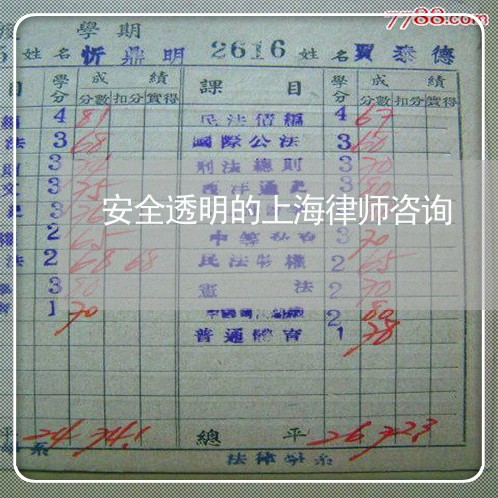 7788.com
學期
姓名 忻鼎明 2616 姓名 賈泰德
目 學分 成績 課目 學分 成績
分數 扣分 實得 分數 扣分 實得
4 81 民法債編 4 67
法 3 68 國際公法 3 60
3 刑法總則 3 70
3 75 西洋通史 3 80
安全透明的上海律师咨询
2 65 3 70
法 2 68 68 民法物權 2 65
3 80 憲法 2 70
1 70 2 80
普通體育 1 78
平 24 74.1 總平 26 72.3
系 法律學系